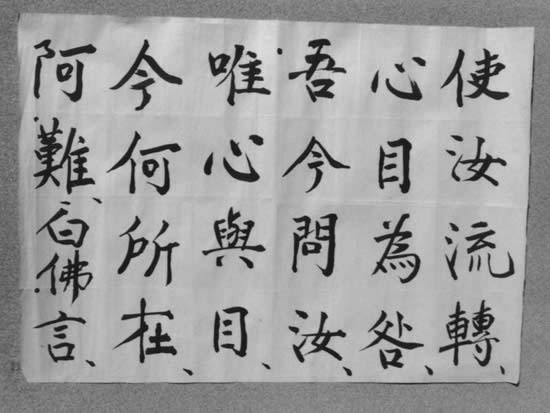 使汝流轉、
心目為咎、
吾今問汝、
唯心與目、
今何所在、
阿難白佛言、